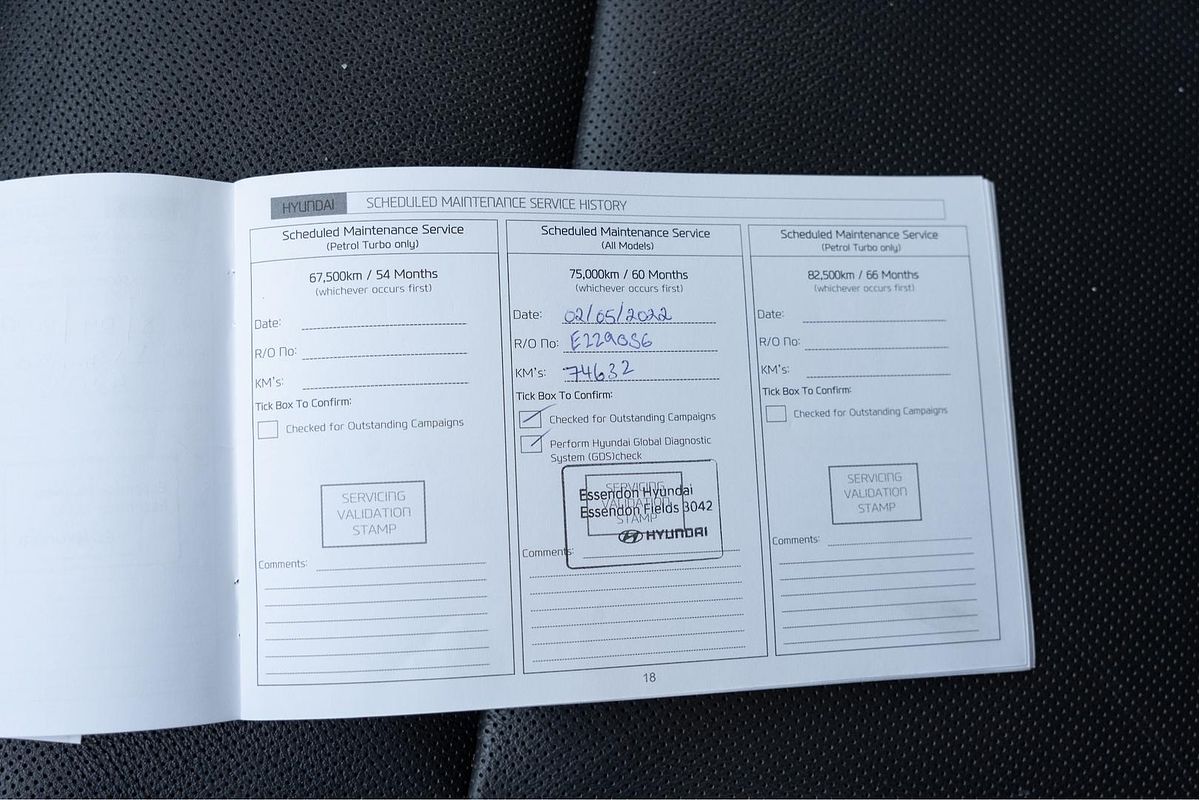 HYUNDAI SCHEDULED MAINTENANCE SERVICE HISTORY
Scheduled Maintenance Service
(Petrol Turbo only)
67,500km / 54 Months
(whichever occurs first)
Date:
R/O No:
KM's:
Tick Box To Confirm:
Checked for Outstanding Campaigns
SERVICING
VALIDATION
STAMP
Comments:
Scheduled Maintenance Service
(All Models)
75,000km / 60 Months
(whichever occurs first)
Date: 02/05/2022
R/O No: E229056
KM's: 74632
Tick Box To Confirm:
Checked for Outstanding Campaigns
Perform Hyundai Global Diagnostic
System (GDS)check
SERVICING
VALIDATION
STAMP
Essendon Hyundai
Essendon Fields 3042
HYUNDAI
Comments:
Scheduled Maintenance Service
(Petrol Turbo only)
82,500km / 66 Months
(whichever occurs first)
Date:
R/O No:
KM's:
Tick Box To Confirm:
Checked for Outstanding Campaigns
SERVICING
VALIDATION
STAMP
Comments:
18